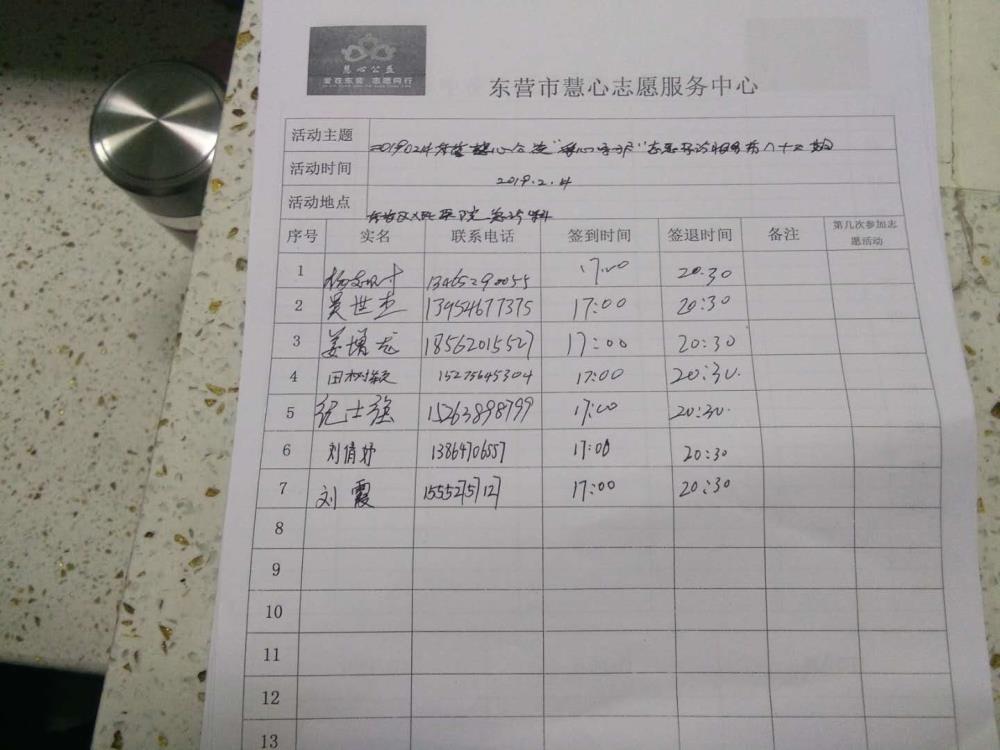 慧心公益
爱在东营 志愿同行
东营市慧心志愿服务中心
活动主题 20190204东营慧心公益"
活动时间 2019.2.4
活动地点 东营区人民医院急诊科
序号 实名 联系电话 签到时间 签退时间 备注 第几次参加志愿活动
1 13465290055 17:00 20:30
2 吴世杰 13954677375 17:00 20:30
3 姜增龙 18562015527 17:00 20:30
4 田树颖 15275645304 17:00 20:30.
5 纪士强 15263898799 17:00 20:30.
6 刘倩妤 13864706557 17:00 20:30
7 刘霞 15552757127 17:00 20:30
8
9
10
11
12
13